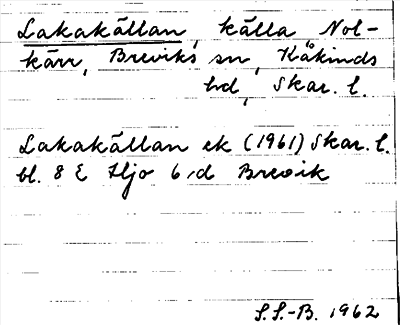 Lakakällan, källa Nol-
kärr, Breviks sn, Kåkinds
hd, Skar. l.
Lakakällan ek (1961) Skar. l.
bl. 8 E Hjo 6 d Brevik
S.S.-B. 1962